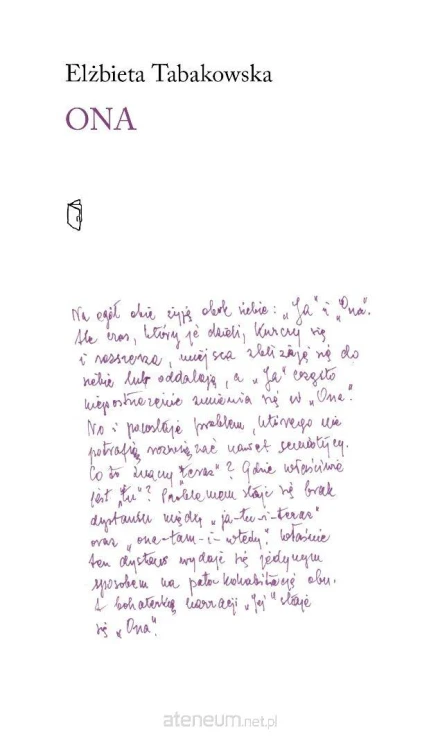 Elżbieta Tabakowska
ONA
Na ogół obie żyją obok siebie: „Ja” i „Ona”.
Ale czas, który je dzieli, kurczy się
i rozszerza, miejsca zbliżają się do
siebie lub oddalają, a „Ja” często
niepostrzeżenie zmienia się w „Ona”.
No i pozostaje problem, którego nie
potrafią rozwiązać nawet semiotycy.
Co to znaczy „teraz”? Gdzie właściwie
jest „tu”? Problemem staje się brak
dystansu między „ja-tu-i-teraz”
oraz „ona-tam-i-wtedy”. Właśnie
ten dystans wydaje się jedynym
sposobem na kohabitację obu.
I bohaterką narracji „Jej” staje
się „Ona”.
ateneum.net.pl